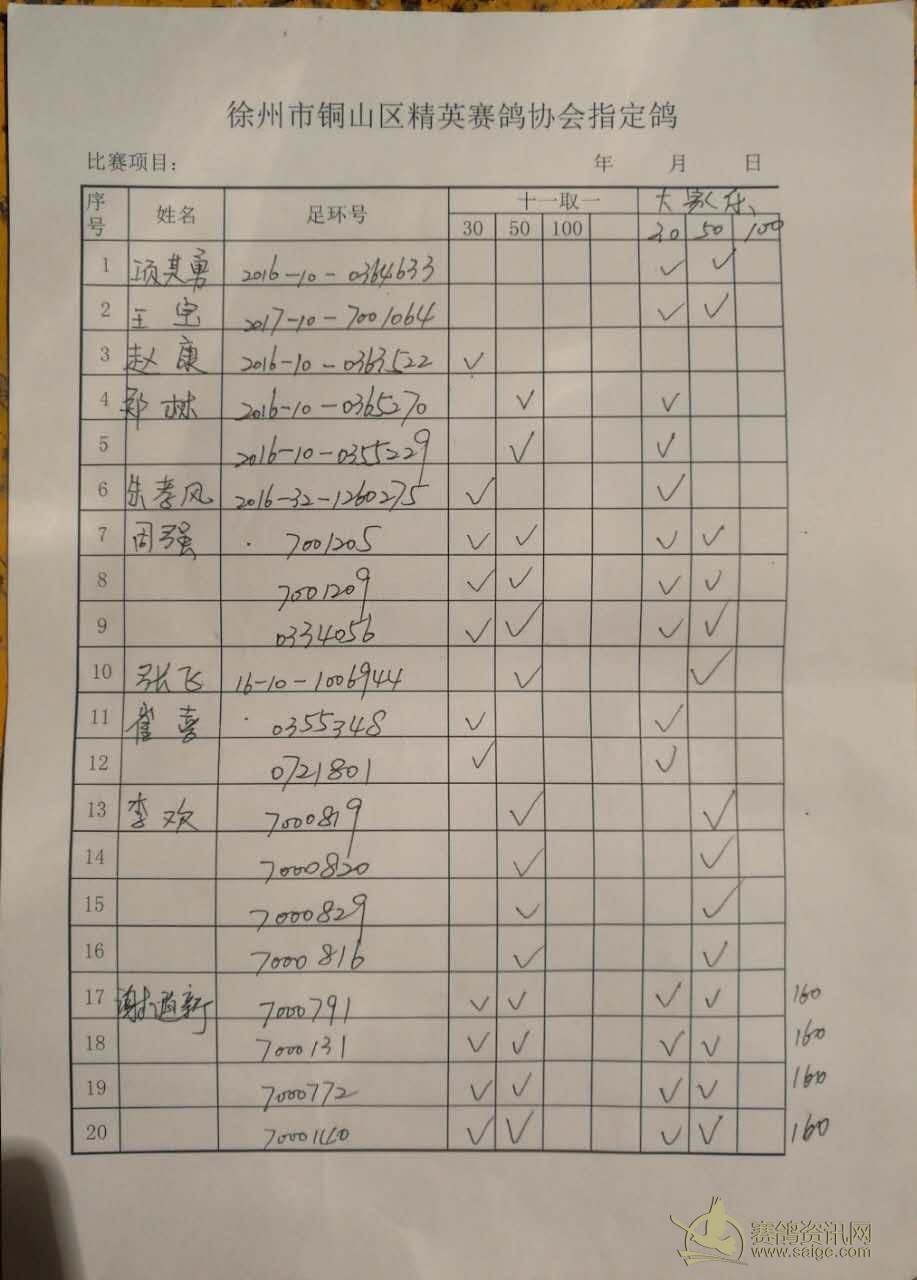 徐州市铜山区精英赛鸽协会指定鸽
比赛项目: 年 月 日
序号 姓名 足环号 十一取一 大家乐、
30 50 100 30 50 100
1 项其勇 2016-10-0364633 ✓ ✓
2 王宝 2017-10-7001064 ✓ ✓
3 赵康 2016-10-0363522 ✓
4 郑林 2016-10-0365270 ✓ ✓
5 2016-10-0355229 ✓ ✓
6 朱孝风 2016-32-1260275 ✓ ✓
7 周强 7001205 ✓ ✓ ✓ ✓
8 7001209 ✓ ✓ ✓ ✓
9 0334056 ✓ ✓ ✓ ✓
10 张飞 16-10-1006944 ✓ ✓
11 崔喜 0355348 ✓ ✓
12 0721801 ✓ ✓
13 李欢 7000819 ✓ ✓
14 7000820 ✓ ✓
15 7000829 ✓ ✓
16 7000816 ✓ ✓
17 谢道新 7000791 ✓ ✓ ✓ ✓ 160
18 7000131 ✓ ✓ ✓ ✓ 160
19 7000772 ✓ ✓ ✓ ✓ 160
20 7000140 ✓ ✓ ✓ ✓ 160
赛鸽资讯网
www.saige.com